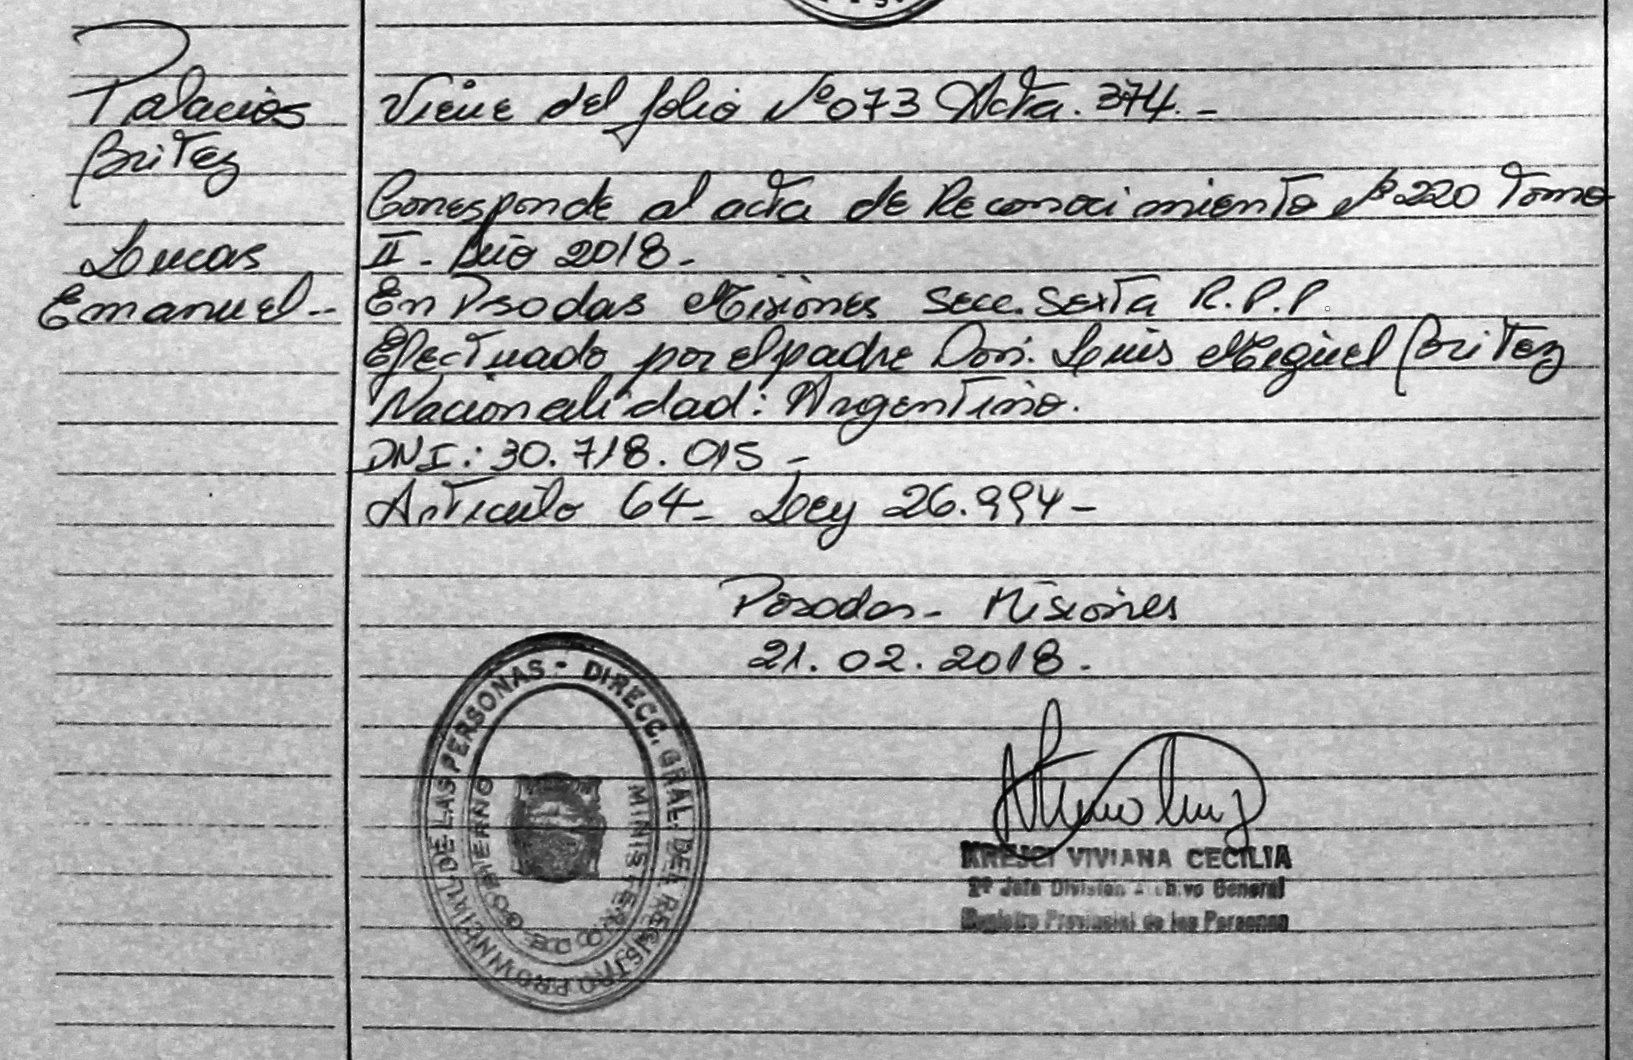 Palacios
Britez
Lucas
Emanuel--
Viene del folio Nº 073 Acta. 374.-
Corresponde al acta de Reconocimiento Nº 220 Tomo
II - Año 2018.-
En Psodas Misiones Secc. Sexta R.P.P.
Efectuado por el padre Don: Luis Miguel Britez
Nacionalidad: Argentino.
DNI: 30.718.015 -
Artículo 64- Ley 26.994-
Posadas- Misiones
21.02.2018.
DIRECC. GRAL. DEL REGISTRO PROVINCIAL DE LAS PERSONAS -
MINISTERIO DE GOBIERNO
KRESCI VIVIANA CECILIA
2º Jefa División Archivo General
Registro Provincial de las Personas